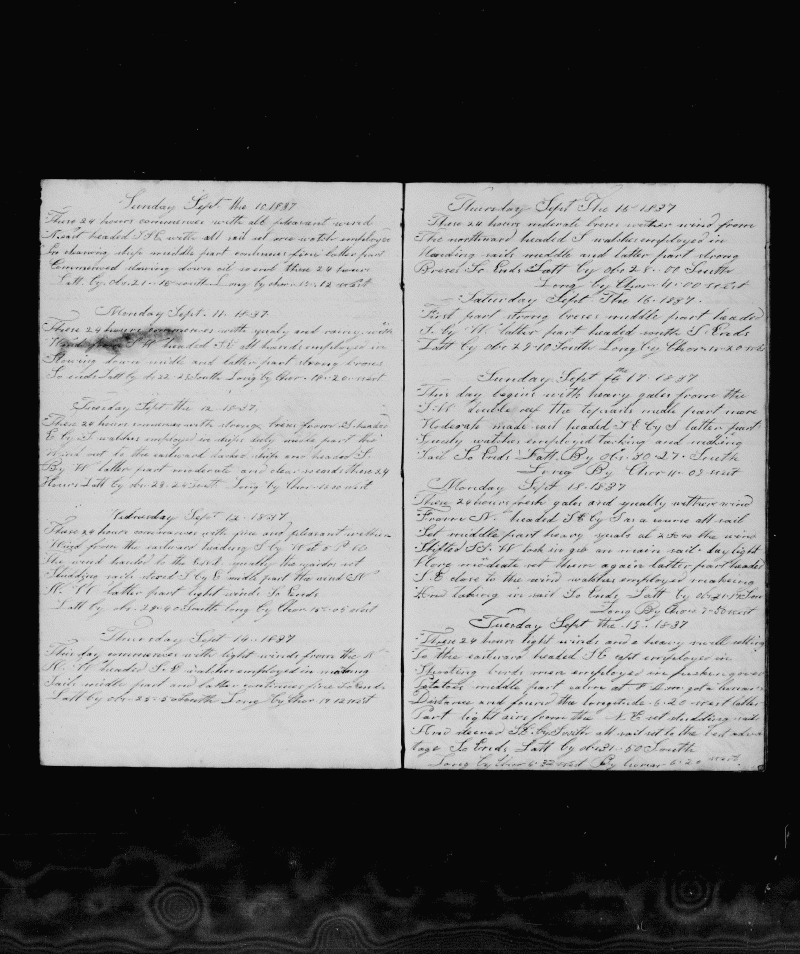 Sunday Sept the 10 1837
These 24 hours commences with all pleasant wind
headed S E with all sail set one watch employed
In cleaning ship middle part continues fine latter part
Commenced stowing down oil so end these 24 hours
Latt by obs 21-18 South Long by chor 15-12 west
Monday Sept 11 1837
These 24 hours commences with squaly and rainy with
Wind W headed S E all hands employed in
Stowing down middle and latter part strong breses
So ends Latt by ob 22-23 South Long by Chor 16-20 west
Tuesday Sept the 12 1837
These 24 hours commences with strong breses from S headed
E by S watches employed in ships duty midle part the
Wind out to the eastward tacked ship and headed S
By W latter part moderate and clear so ends these 24
Hours Latt by obs 23-25 South Long by Chor west
Wednesday Sept 13 1837
These 24 hours commences with fine and pleasant wether
Wind from the eastward heading S by W at 5 P M
The wind hauled to the squally the
Studding sails steard S by E midle part the wind N
N. W latter part light winds So Ends
Latt by obs 24-40 South long by Chor 15-05 west
Thursday Sept 14 1837
This day commences with light winds from the N
N. W headed S.E watches employed in making
Sails middle part and latter continues fine So Ends
Latt by obs 25-5 South Long by Chor 14 12 west
Thursday Sept The 15 1837
These 24 hours moderate breses wether wind from
The northward headed S watches employed in
Mending sails middle and latter part strong
Breses So Ends Latt by obs 28-00 South
Long by Chor 4-00 west
Saturday Sept The 16 1837
First part strong breses middle part headed
S by W latter part headed south S. Ends
Latt by obs 29-10 South Long by Chor 20 west
Sunday Sept the 17 1837
This day begins with heavy gales from the
S-W double reef the topsails midle part more
Moderate made sail headed S E by S latter part
Squaly watches employed tacking and making
Sail So Ends Latt By Obs 30-27 South
Long By Chor 4-03 west
Monday Sept 18 1837
These 24 hours fresh gales and squally wether wind
From N headed S E by S all sail
Set middle part heavy squals at the wind
Shifted S S. W took in main sail day light
More moderate set them again latter part headed
S. E close to the wind watches employed makeing
And takeing in sail So Ends Latt by ob 31-17 Sou
Long By Chor 7-30 west
Tuesday Sept the 19 1837
These 24 hours light winds and a heavy swell setting
To the eastward headed S E employed in
Shooting birds men employed in
potatoes middle part calm at 1 A m got a lunar
Distance and found the longitude 6-20 west latter
Part light airs from the N. E set studding sails
And steered S E by South all sail set to the best advan
tage So Ends Latt by obs 31-50 South
Long by Chor 6-32 west By lunar 6-20 west